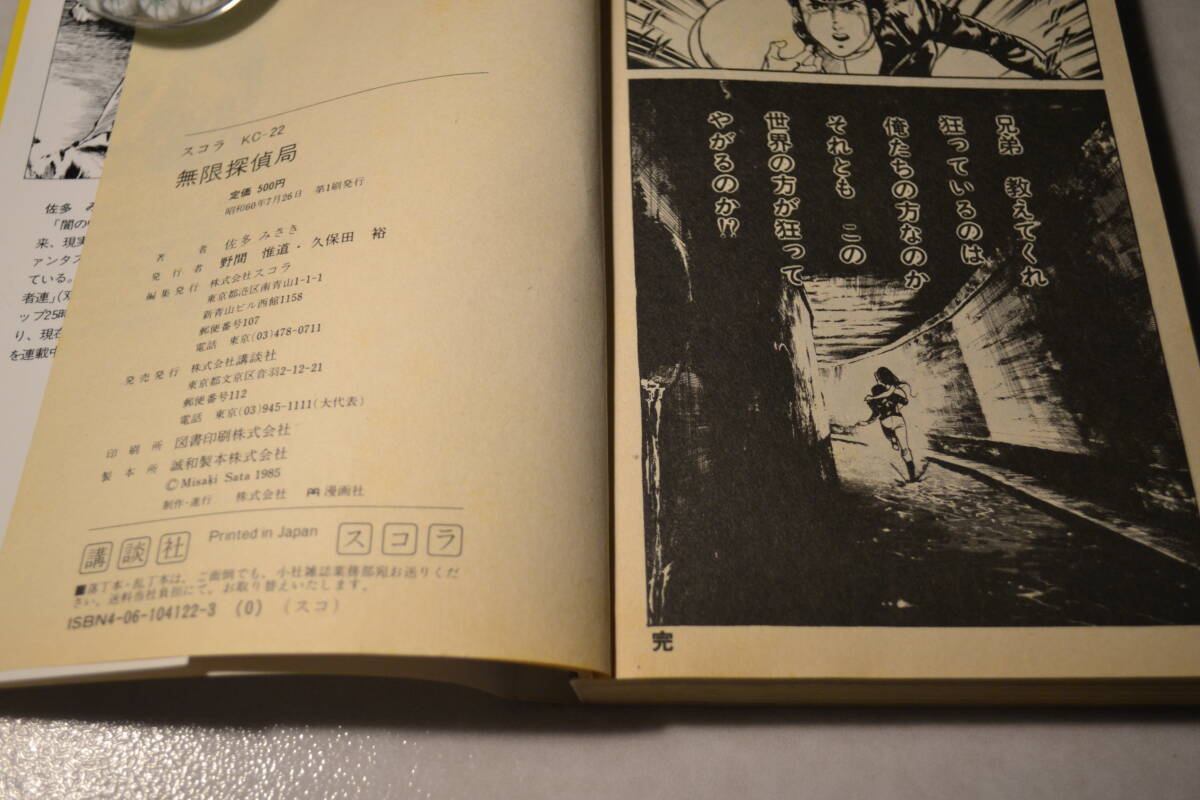 スコラ KC-22
無限探偵局
定価 500円
昭和60年7月26日 第1刷発行
著者 佐多 みさき
発行者 野間 惟道・久保田 裕
編集発行 株式会社スコラ
東京都港区南青山1-1-1
新青山ビル西館1158
郵便番号107
電話 東京(03)478-0711
発売発行 株式会社講談社
東京都文京区音羽2-12-21
郵便番号112
電話 東京(03)945-1111(大代表)
印刷所 図書印刷株式会社
製本所 誠和製本株式会社
©Misaki Sata 1985
制作・進行 株式会社 漫画社
講談社 Printed in Japan スコラ
■落丁本・乱丁本は、ご面倒でも、小社雑誌業務部宛お送りくだ
さい。送料当社負担にて、お取り替えいたします。
ISBN4-06-104122-3 (0) (スコ)
佐多 み
「闇の
来、現実
ァンタス
ている。
者連」(双
ップ25時
り、現在
を連載中
兄弟 教えてくれ
狂っているのは
俺たちの方なのか
それとも この
世界の方が狂って
やがるのか!?
完